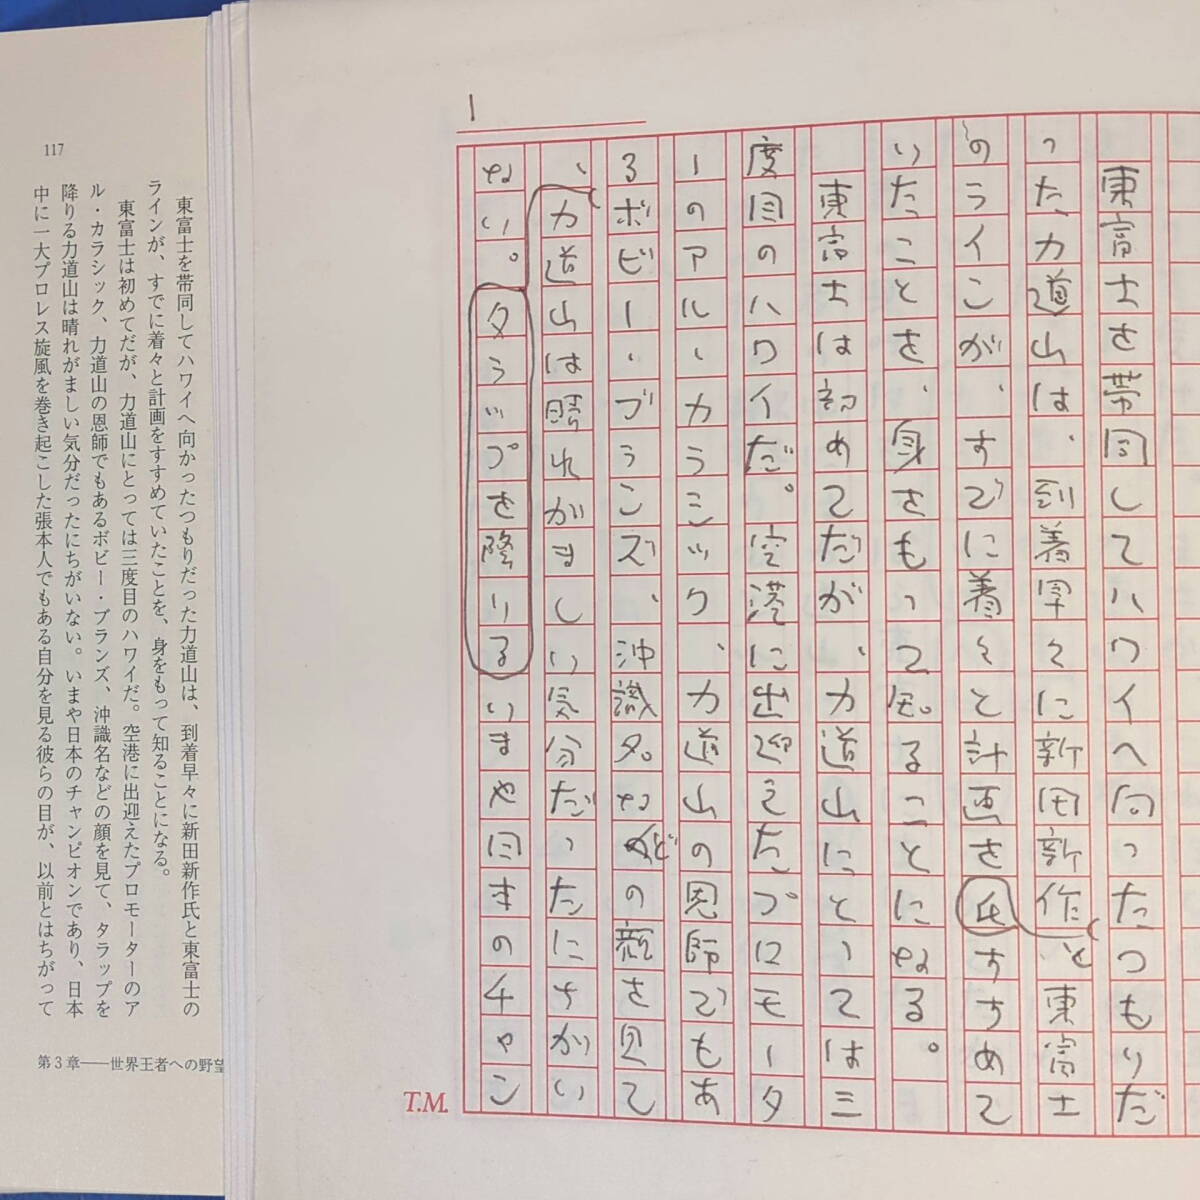 1
東富士を帯同してハワイへ向ったつもりだ
った力道山は、到着早々に新田新作と東富士
のラインが、すでに着々と計画を氏すすめて
いたことを、身をもって知ることになる。
東富士は初めてだが、力道山にとっては三
度目のハワイだ。空港に出迎えたプロモータ
ーのアル・カラシック、力道山の恩師でもあ
るボビー・ブランズ、沖識名などの顔を見て
、力道山は晴れがましい気分だったにちがい
ない。タラップを降りるいまや日本のチャン
T.M.
117
東富士を帯同してハワイへ向かったつもりだった力道山は、到着早々に新田新作氏と東富士の
ラインが、すでに着々と計画をすすめていたことを、身をもって知ることになる。
東富士は初めてだが、力道山にとっては三度目のハワイだ。空港に出迎えたプロモーターのア
ル・カラシック、力道山の恩師でもあるボビー・ブランズ、沖識名などの顔を見て、タラップを
降りる力道山は晴れがましい気分だったにちがいない。いまや日本のチャンピオンであり、日本
中に一大プロレス旋風を巻き起こした張本人でもある自分を見る彼らの目が、以前とはちがって
第3章——世界王者への野望